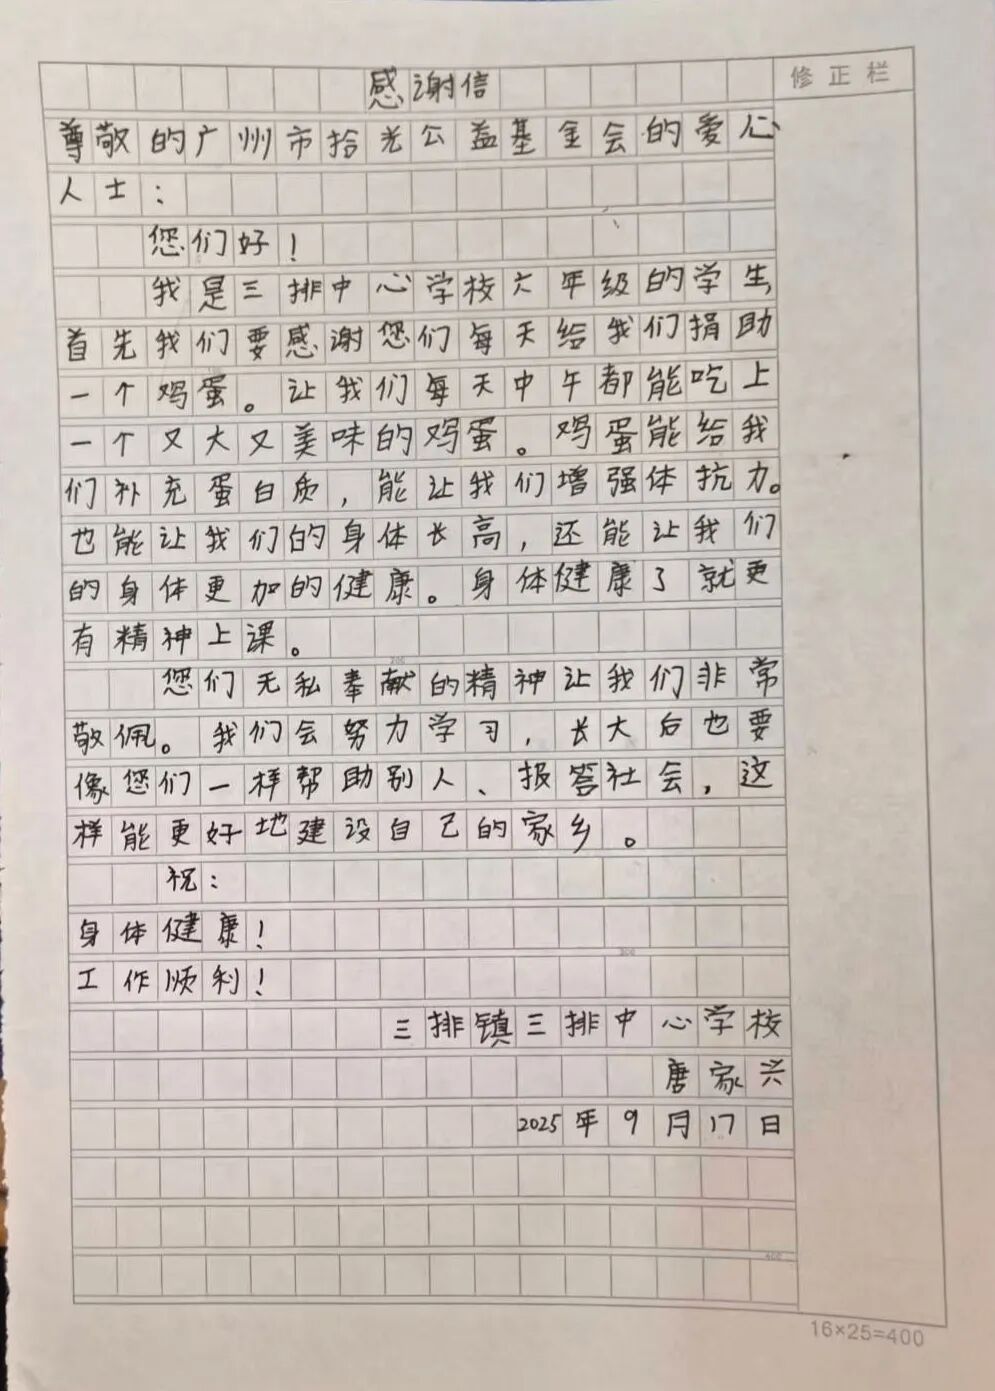 修正栏
感谢信
尊敬的广州市拾光公益基金会的爱心
人士：
您们好！
我是三排中心学校六年级的学生,
首先我们要感谢您们每天给我们捐助
一个鸡蛋。让我们每天中午都能吃上
一个又大又美味的鸡蛋。鸡蛋能给我
们补充蛋白质，能让我们增强体抗力。
也能让我们的身体长高，还能让我们
的身体更加的健康。身体健康了就更
有精神上课。
200
您们无私奉献的精神让我们非常
敬佩。我们会努力学习，长大后也要
像您们一样帮助别人、报答社会，这
样能更好地建设自己的家乡。
祝：
身体健康！
300
工作顺利！
三排镇三排中心学校
唐家兴
2025年9月17日
400
16×25=400